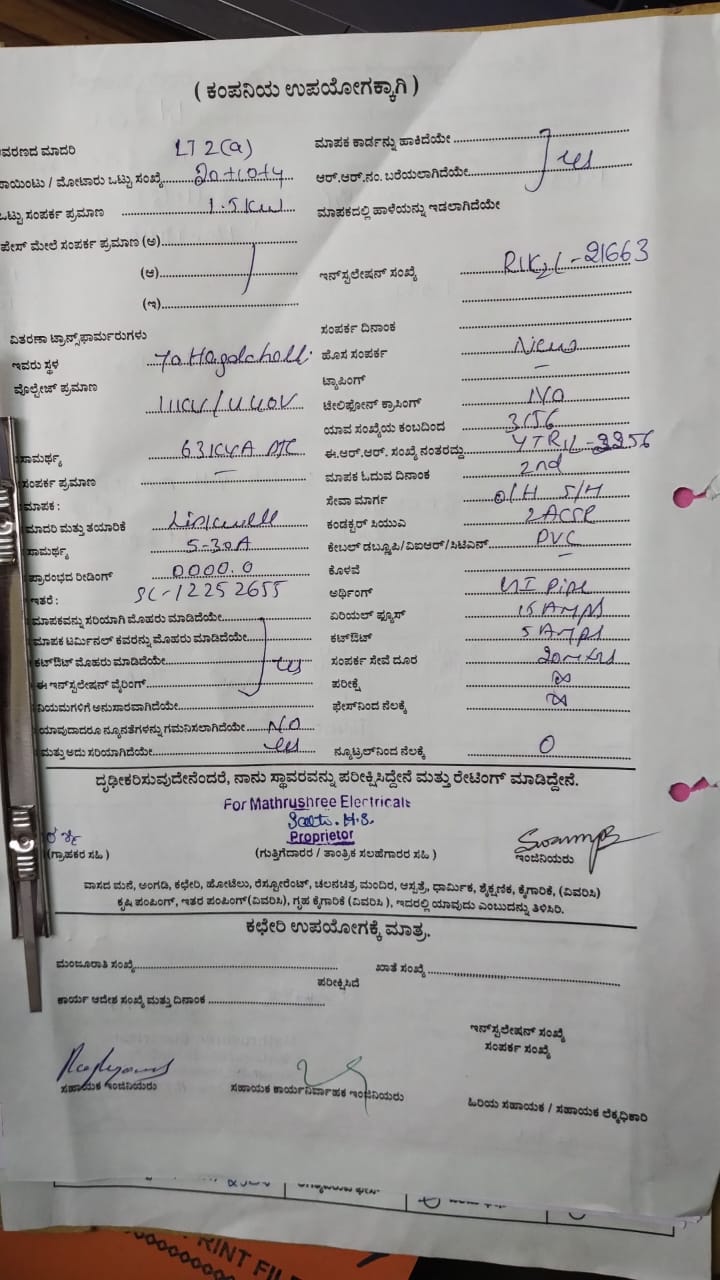 ( ಕಂಪನಿಯ ಉಪಯೋಗಕ್ಕಾಗಿ )
ವರಣದ ಮಾದರಿ LT 2(a) ಮಾಪಕ ಕಾರ್ಡನ್ನು ಹಾಕಿದೆಯೇ
ಾಯಿಂಟು / ಮೋಟಾರು ಒಟ್ಟು ಸಂಖ್ಯೆ ಆರ್.ಆರ್.ನಂ. ಬರೆಯಲಾಗಿದೆಯೇ yes
ಒಟ್ಟು ಸಂಪರ್ಕ ಪ್ರಮಾಣ 1.5 KW ಮಾಪಕದಲ್ಲಿ ಹಾಳೆಯನ್ನು ಇಡಲಾಗಿದೆಯೇ
ಫೇಸ್ ಮೇಲೆ ಸಂಪರ್ಕ ಪ್ರಮಾಣ (ಅ)
(ಆ) ಇನ್‌ಸ್ಟಲೇಷನ್ ಸಂಖ್ಯೆ -21663
(ಇ)
ವಿತರಣಾ ಟ್ರಾನ್ಸ್‌ಫಾರ್ಮರುಗಳು ಸಂಪರ್ಕ ದಿನಾಂಕ
ಇವರು ಸ್ಥಳ ಹೊಸ ಸಂಪರ್ಕ New
ವೊಲ್ಟೇಜ್ ಪ್ರಮಾಣ 11KV/440V ಟ್ಯಾಪಿಂಗ್ –
ಟೇಲಿಫೋನ್ ಕ್ರಾಸಿಂಗ್ NO
ಯಾವ ಸಂಖ್ಯೆಯ ಕಂಬದಿಂದ 3/56
ಸಾಮರ್ಥ್ಯ 63KVA ಈ.ಆರ್.ಆರ್. ಸಂಖ್ಯೆ ನಂತರದ್ದು
ಸಂಪರ್ಕ ಪ್ರಮಾಣ – ಮಾಪಕ ಓದುವ ದಿನಾಂಕ 2nd
ಮಾಪಕ : ಸೇವಾ ಮಾರ್ಗ O/H S/H
ಮಾದರಿ ಮತ್ತು ತಯಾರಿಕೆ Linkwell ಕಂಡಕ್ಟರ್ ಸಿಯುಎ 2 ACSR
ಸಾಮರ್ಥ್ಯ 5-30A ಕೇಬಲ್ ಡಬ್ಲೂಪಿ/ವಿಐಆರ್/ಸಿಟಿಎಸ್ PVC
ಪ್ರಾರಂಭದ ರೀಡಿಂಗ್ 0000.0 ಕೊಳವೆ –
ಇತರೆ : SL-12252655 ಅರ್ಥಿಂಗ್ GI Pipe
ಮಾಪಕವನ್ನು ಸರಿಯಾಗಿ ಮೊಹರು ಮಾಡಿದೆಯೇ ಏರಿಯಲ್ ಫ್ಯೂಸ್ 15 AMPS
ಮಾಪಕ ಟರ್ಮಿನಲ್ ಕವರನ್ನು ಮೊಹರು ಮಾಡಿದೆಯೇ ಕಟ್‌ಔಟ್ 5 AMPS
ಕಟ್‌ಔಟ್ ಮೊಹರು ಮಾಡಿದೆಯೇ yes ಸಂಪರ್ಕ ಸೇವೆ ದೂರ 20 mtrs
ಈ ಇನ್‌ಸ್ಟಲೇಷನ್ ವೈರಿಂಗ್ ಪರೀಕ್ಷೆ ∞
ನಿಯಮಗಳಿಗೆ ಅನುಸಾರವಾಗಿದೆಯೇ ಫೇಸ್‌ನಿಂದ ನೆಲಕ್ಕೆ ∞
ಯಾವುದಾದರೂ ನ್ಯೂನತೆಗಳನ್ನು ಗಮನಿಸಲಾಗಿದೆಯೇ NO
ಮತ್ತು ಅದು ಸರಿಯಾಗಿದೆಯೇ yes ನ್ಯೂಟ್ರಲ್‌ನಿಂದ ನೆಲಕ್ಕೆ 0
ದೃಢೀಕರಿಸುವುದೇನೆಂದರೆ, ನಾನು ಸ್ಥಾವರವನ್ನು ಪರೀಕ್ಷಿಸಿದ್ದೇನೆ ಮತ್ತು ರೇಟಿಂಗ್ ಮಾಡಿದ್ದೇನೆ.
For Mathrushree Electricals
Proprietor
(ಗ್ರಾಹಕರ ಸಹಿ ) (ಗುತ್ತಿಗೆದಾರರ / ತಾಂತ್ರಿಕ ಸಲಹೆಗಾರರ ಸಹಿ ) ಇಂಜಿನಿಯರು
ವಾಸದ ಮನೆ, ಅಂಗಡಿ, ಕಛೇರಿ, ಹೋಟೆಲು, ರೆಸ್ಟೋರೆಂಟ್, ಚಲನಚಿತ್ರ ಮಂದಿರ, ಆಸ್ಪತ್ರೆ, ಧಾರ್ಮಿಕ, ಶೈಕ್ಷಣಿಕ, ಕೈಗಾರಿಕೆ, (ವಿವರಿಸಿ)
ಕೃಷಿ ಪಂಪಿಂಗ್, ಇತರ ಪಂಪಿಂಗ್(ವಿವರಿಸಿ), ಗೃಹ ಕೈಗಾರಿಕೆ (ವಿವರಿಸಿ ), ಇದರಲ್ಲಿ ಯಾವುದು ಎಂಬುದನ್ನು ತಿಳಿಸಿರಿ.
ಕಛೇರಿ ಉಪಯೋಗಕ್ಕೆ ಮಾತ್ರ.
ಮಂಜೂರಾತಿ ಸಂಖ್ಯೆ ಖಾತೆ ಸಂಖ್ಯೆ
ಪರೀಕ್ಷಿಸಿದೆ
ಕಾರ್ಯ ಆದೇಶ ಸಂಖ್ಯೆ ಮತ್ತು ದಿನಾಂಕ
ಇನ್‌ಸ್ಟಲೇಷನ್ ಸಂಖ್ಯೆ
ಸಂಪರ್ಕ ಸಂಖ್ಯೆ
ಸಹಾಯಕ ಇಂಜಿನಿಯರು ಸಹಾಯಕ ಕಾರ್ಯನಿರ್ವಾಹಕ ಇಂಜಿನಿಯರು ಹಿರಿಯ ಸಹಾಯಕ / ಸಹಾಯಕ ಲೆಕ್ಕಧಿಕಾರಿ
PRINT FIL